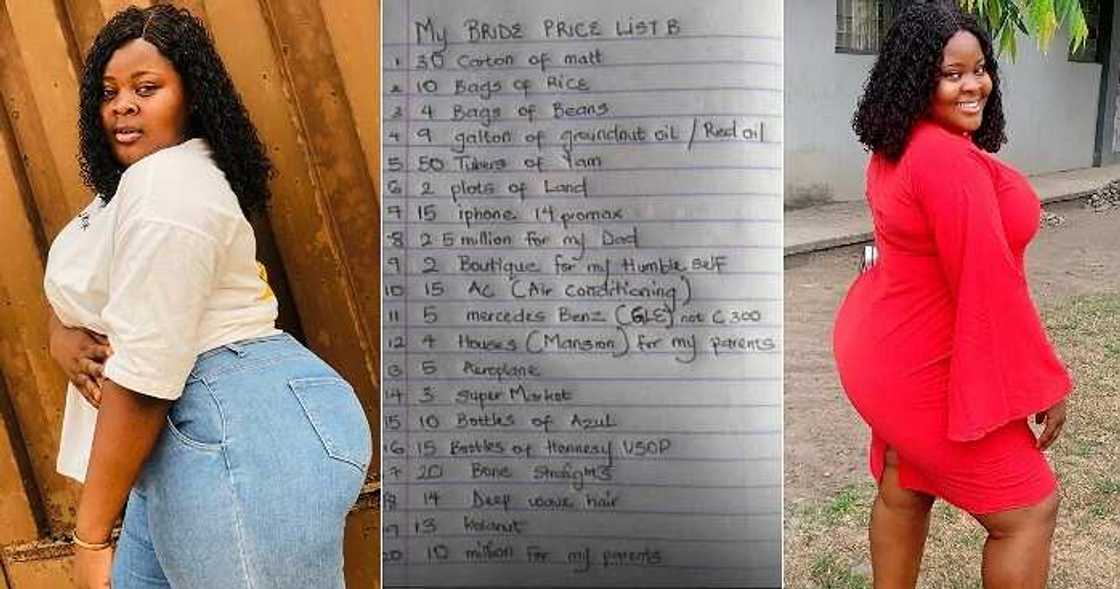 My BRIDE PRICE LIST B
1 30 Carton of matt
2 10 Bags of Rice
3 4 Bags of Beans
4 9 gallon of groundnut oil / Red oil
5 50 Tubers of Yam
6 2 plots of Land
7 15 iphone 14 promax
8 25 million for my Dad
9 2 Boutique for my Humble self
10 15 AC (Air conditioning)
11 5 mercedes Benz (GLE) not C300
12 4 Houses (Mansion) for my parents
13 5 Aeroplane
14 3 super Market
15 10 Bottles of Azul
16 15 Bottles of Hennesy VSOP
7 20 Bone straights
8 14 Deep wave hair
9 13 Kolanut
20 10 million for my parents